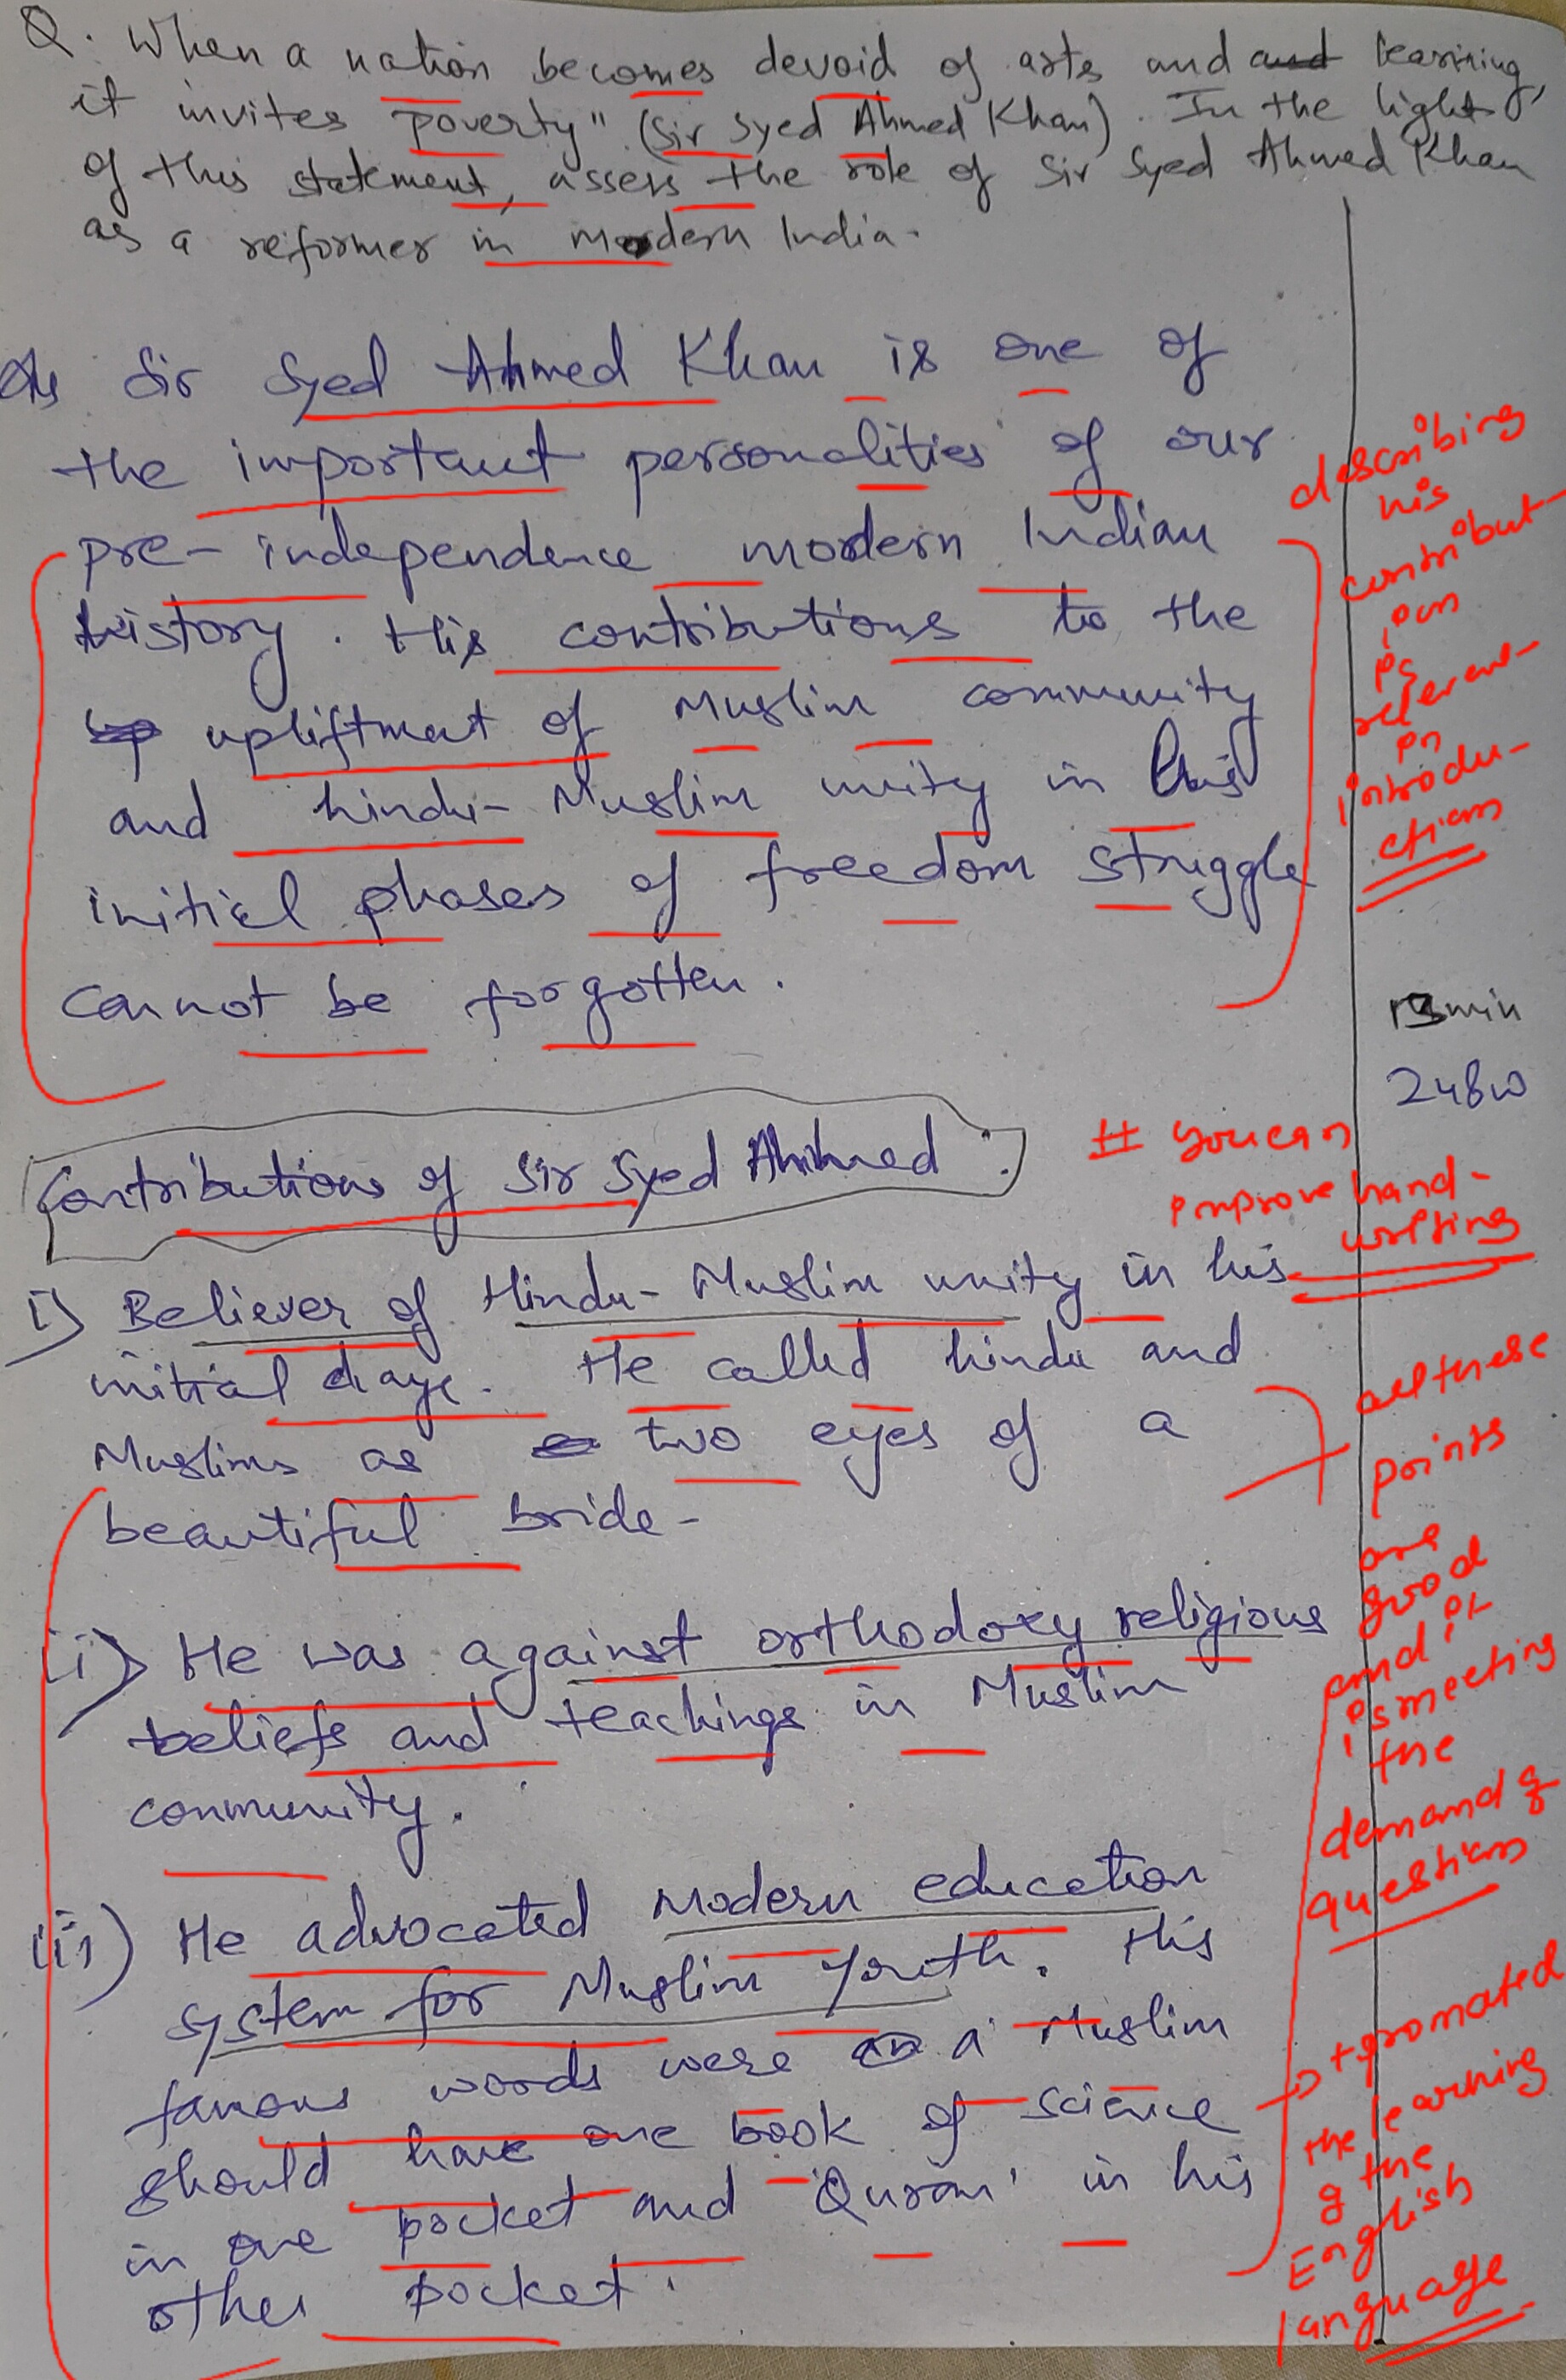 Q. When a nation becomes devoid of arts and and learning,
it invites poverty" (Sir Syed Ahmed Khan). In the light
of this statement, assess the role of Sir Syed Ahmed Khan
as a reformer in modern India.
Sir Syed Ahmed Khan is one of
the important personalities of our
pre-independence modern Indian
history. His contributions to the
up upliftment of Muslim community
and hindu-Muslim unity in his
initial phases of freedom struggle
cannot be forgotten.
describing
his
contribut-
ion
is
relevent-
in
introdu-
ction
13 min
248w
Contributions of Sir Syed Ahmed :
# you can
improve hand-
writing
i) Believer of Hindu-Muslim unity in his
initial days. He called hindu and
Muslims as two eyes of a
beautiful bride-
ii) He was against orthodoxy religious
beliefs and teachings in Muslim
community.
iii) He advocated Modern education
system for Muslim youth. His
famous words were a Muslim
should have one book of science
in one pocket and 'Quran' in his
other pocket.
all these
points
are
good
and it
is meeting
the
demand of
question
→ + promoted
the learning
of the
English
language